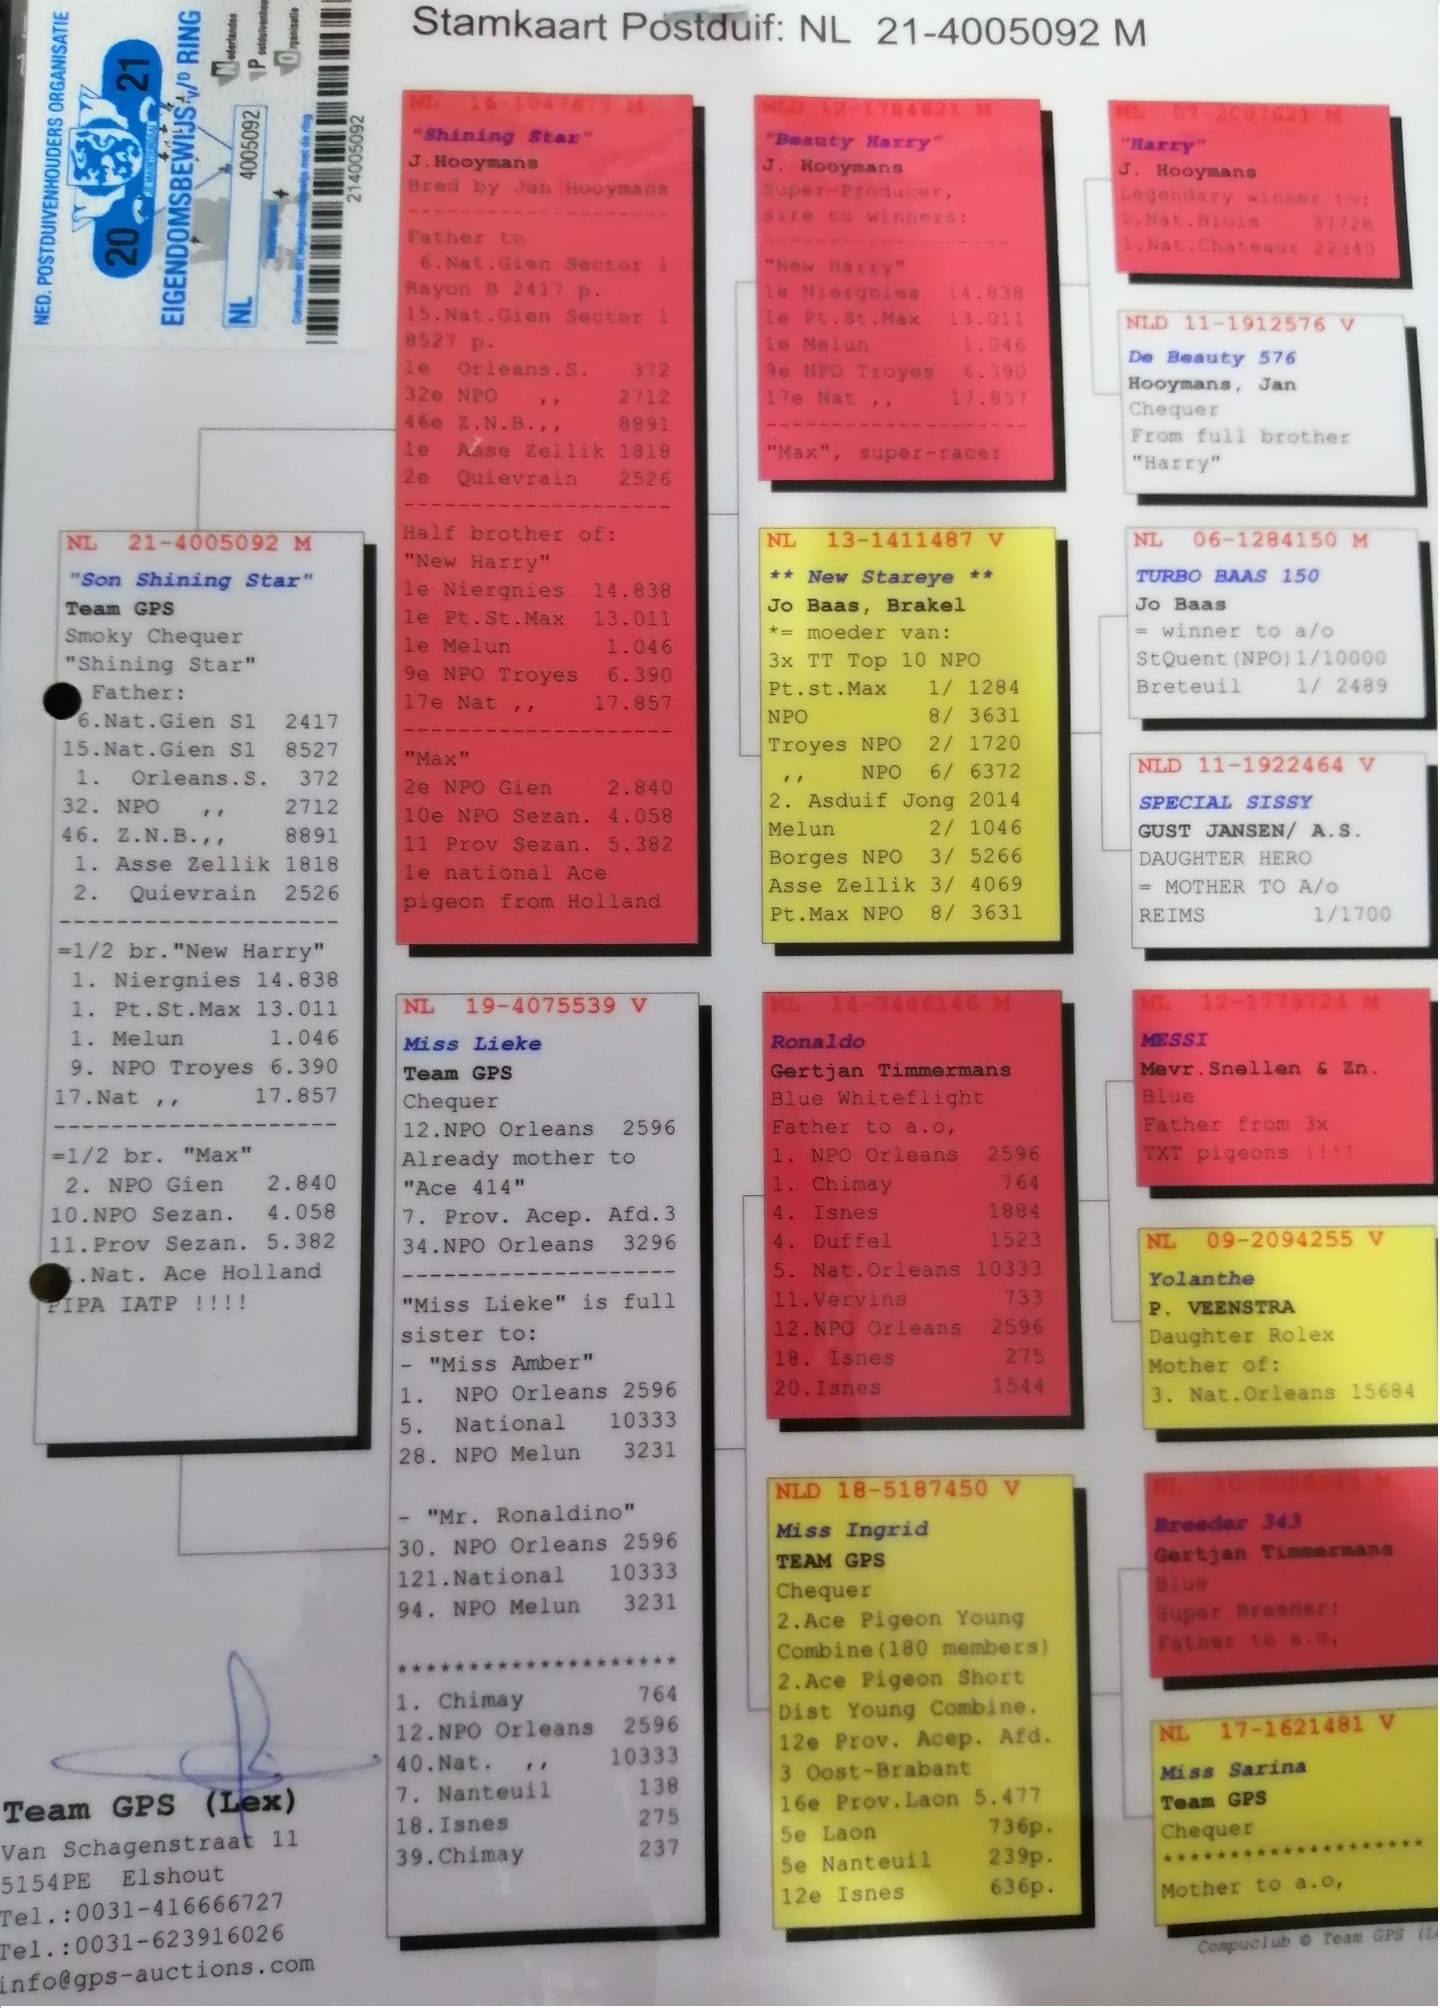 Stamkaart Postduif: NL 21-4005092 M
NED. POSTDUIVENHOUDERS ORGANISATIE
20 21
EIGENDOMSBEWIJS v/d RING
Nederlandse
Postduivenhouders
Organisatie
NL 4005092
214005092
NL 21-4005092 M
"Son Shining Star"
Team GPS
Smoky Chequer
"Shining Star"
Father:
6.Nat.Gien S1 2417
15.Nat.Gien S1 8527
1. Orleans.S. 372
32. NPO ,, 2712
46. Z.N.B.,, 8891
1. Asse Zellik 1818
2. Quievrain 2526
--------------------
=1/2 br."New Harry"
1. Niergnies 14.838
1. Pt.St.Max 13.011
1. Melun 1.046
9. NPO Troyes 6.390
17.Nat ,, 17.857
--------------------
=1/2 br. "Max"
2. NPO Gien 2.840
10.NPO Sezan. 4.058
11.Prov Sezan. 5.382
.Nat. Ace Holland
PIPA IATP !!!!
"Shining Star"
J.Hooymans
Bred by Jan Hooymans
-------------------
Father to
6.Nat.Gien Sector 1
Rayon B 2417 p.
15.Nat.Gien Sector 1
8527 p.
1e Orleans.S. 372
32e NPO ,, 2712
46e Z.N.B.,, 8891
1e Asse Zellik 1818
2e Quievrain 2526
-------------------
Half brother of:
"New Harry"
1e Niergnies 14.838
1e Pt.St.Max 13.011
1e Melun 1.046
9e NPO Troyes 6.390
17e Nat ,, 17.857
-------------------
"Max"
2e NPO Gien 2.840
10e NPO Sezan. 4.058
11 Prov Sezan. 5.382
1e national Ace
pigeon from Holland
NL 19-4075539 V
Miss Lieke
Team GPS
Chequer
12.NPO Orleans 2596
Already mother to
"Ace 414"
7. Prov. Acep. Afd.3
34.NPO Orleans 3296
-------------------
"Miss Lieke" is full
sister to:
- "Miss Amber"
1. NPO Orleans 2596
5. National 10333
28. NPO Melun 3231
- "Mr. Ronaldino"
30. NPO Orleans 2596
121.National 10333
94. NPO Melun 3231
********************
1. Chimay 764
12.NPO Orleans 2596
40.Nat. ,, 10333
7. Nanteuil 138
18.Isnes 275
39.Chimay 237
NLD 12-1784621 M
"Beauty Harry"
J. Hooymans
Super-Producer,
sire to winners:
-------------------
"New Harry"
1e Niergnies 14.838
1e Pt.St.Max 13.011
1e Melun 1.046
9e NPO Troyes 6.390
17e Nat ,, 17.857
-------------------
"Max", super-racer
NL 13-1411487 V
** New Stareye **
Jo Baas, Brakel
*= moeder van:
3x TT Top 10 NPO
Pt.st.Max 1/ 1284
NPO 8/ 3631
Troyes NPO 2/ 1720
,, NPO 6/ 6372
2. Asduif Jong 2014
Melun 2/ 1046
Borges NPO 3/ 5266
Asse Zellik 3/ 4069
Pt.Max NPO 8/ 3631
NL 14-3446146 M
Ronaldo
Gertjan Timmermans
Blue Whiteflight
Father to a.o,
1. NPO Orleans 2596
1. Chimay 764
4. Isnes 1884
4. Duffel 1523
5. Nat.Orleans 10333
11.Vervins 733
12.NPO Orleans 2596
18. Isnes 275
20.Isnes 1544
NLD 18-5187450 V
Miss Ingrid
TEAM GPS
Chequer
2.Ace Pigeon Young
Combine(180 members)
2.Ace Pigeon Short
Dist Young Combine.
12e Prov. Acep. Afd.
3 Oost-Brabant
16e Prov.Laon 5.477
5e Laon 736p.
5e Nanteuil 239p.
12e Isnes 636p.
"Harry"
J. Hooymans
Legendary winner to:
1.Nat.Blois 37728
1.Nat.Chateaur 22340
NLD 11-1912576 V
De Beauty 576
Hooymans, Jan
Chequer
From full brother
"Harry"
NL 06-1284150 M
TURBO BAAS 150
Jo Baas
= winner to a/o
StQuent(NPO)1/10000
Breteuil 1/ 2489
NLD 11-1922464 V
SPECIAL SISSY
GUST JANSEN/ A.S.
DAUGHTER HERO
= MOTHER TO A/o
REIMS 1/1700
NL 12-1779724 M
MESSI
Mevr.Snellen & Zn.
Blue
Father from 3x
TXT pigeons !!!!
NL 09-2094255 V
Yolanthe
P. VEENSTRA
Daughter Rolex
Mother of:
3. Nat.Orleans 15684
Breeder 343
Gertjan Timmermans
Blue
Super Breeder:
Father to a.o,
NL 17-1621481 V
Miss Sarina
Team GPS
Chequer
*******************
Mother to a.o,
Team GPS (Lex)
Van Schagenstraat 11
5154PE Elshout
Tel.:0031-416666727
Tel.:0031-623916026
info@gps-auctions.com
Compuclub © Team GPS